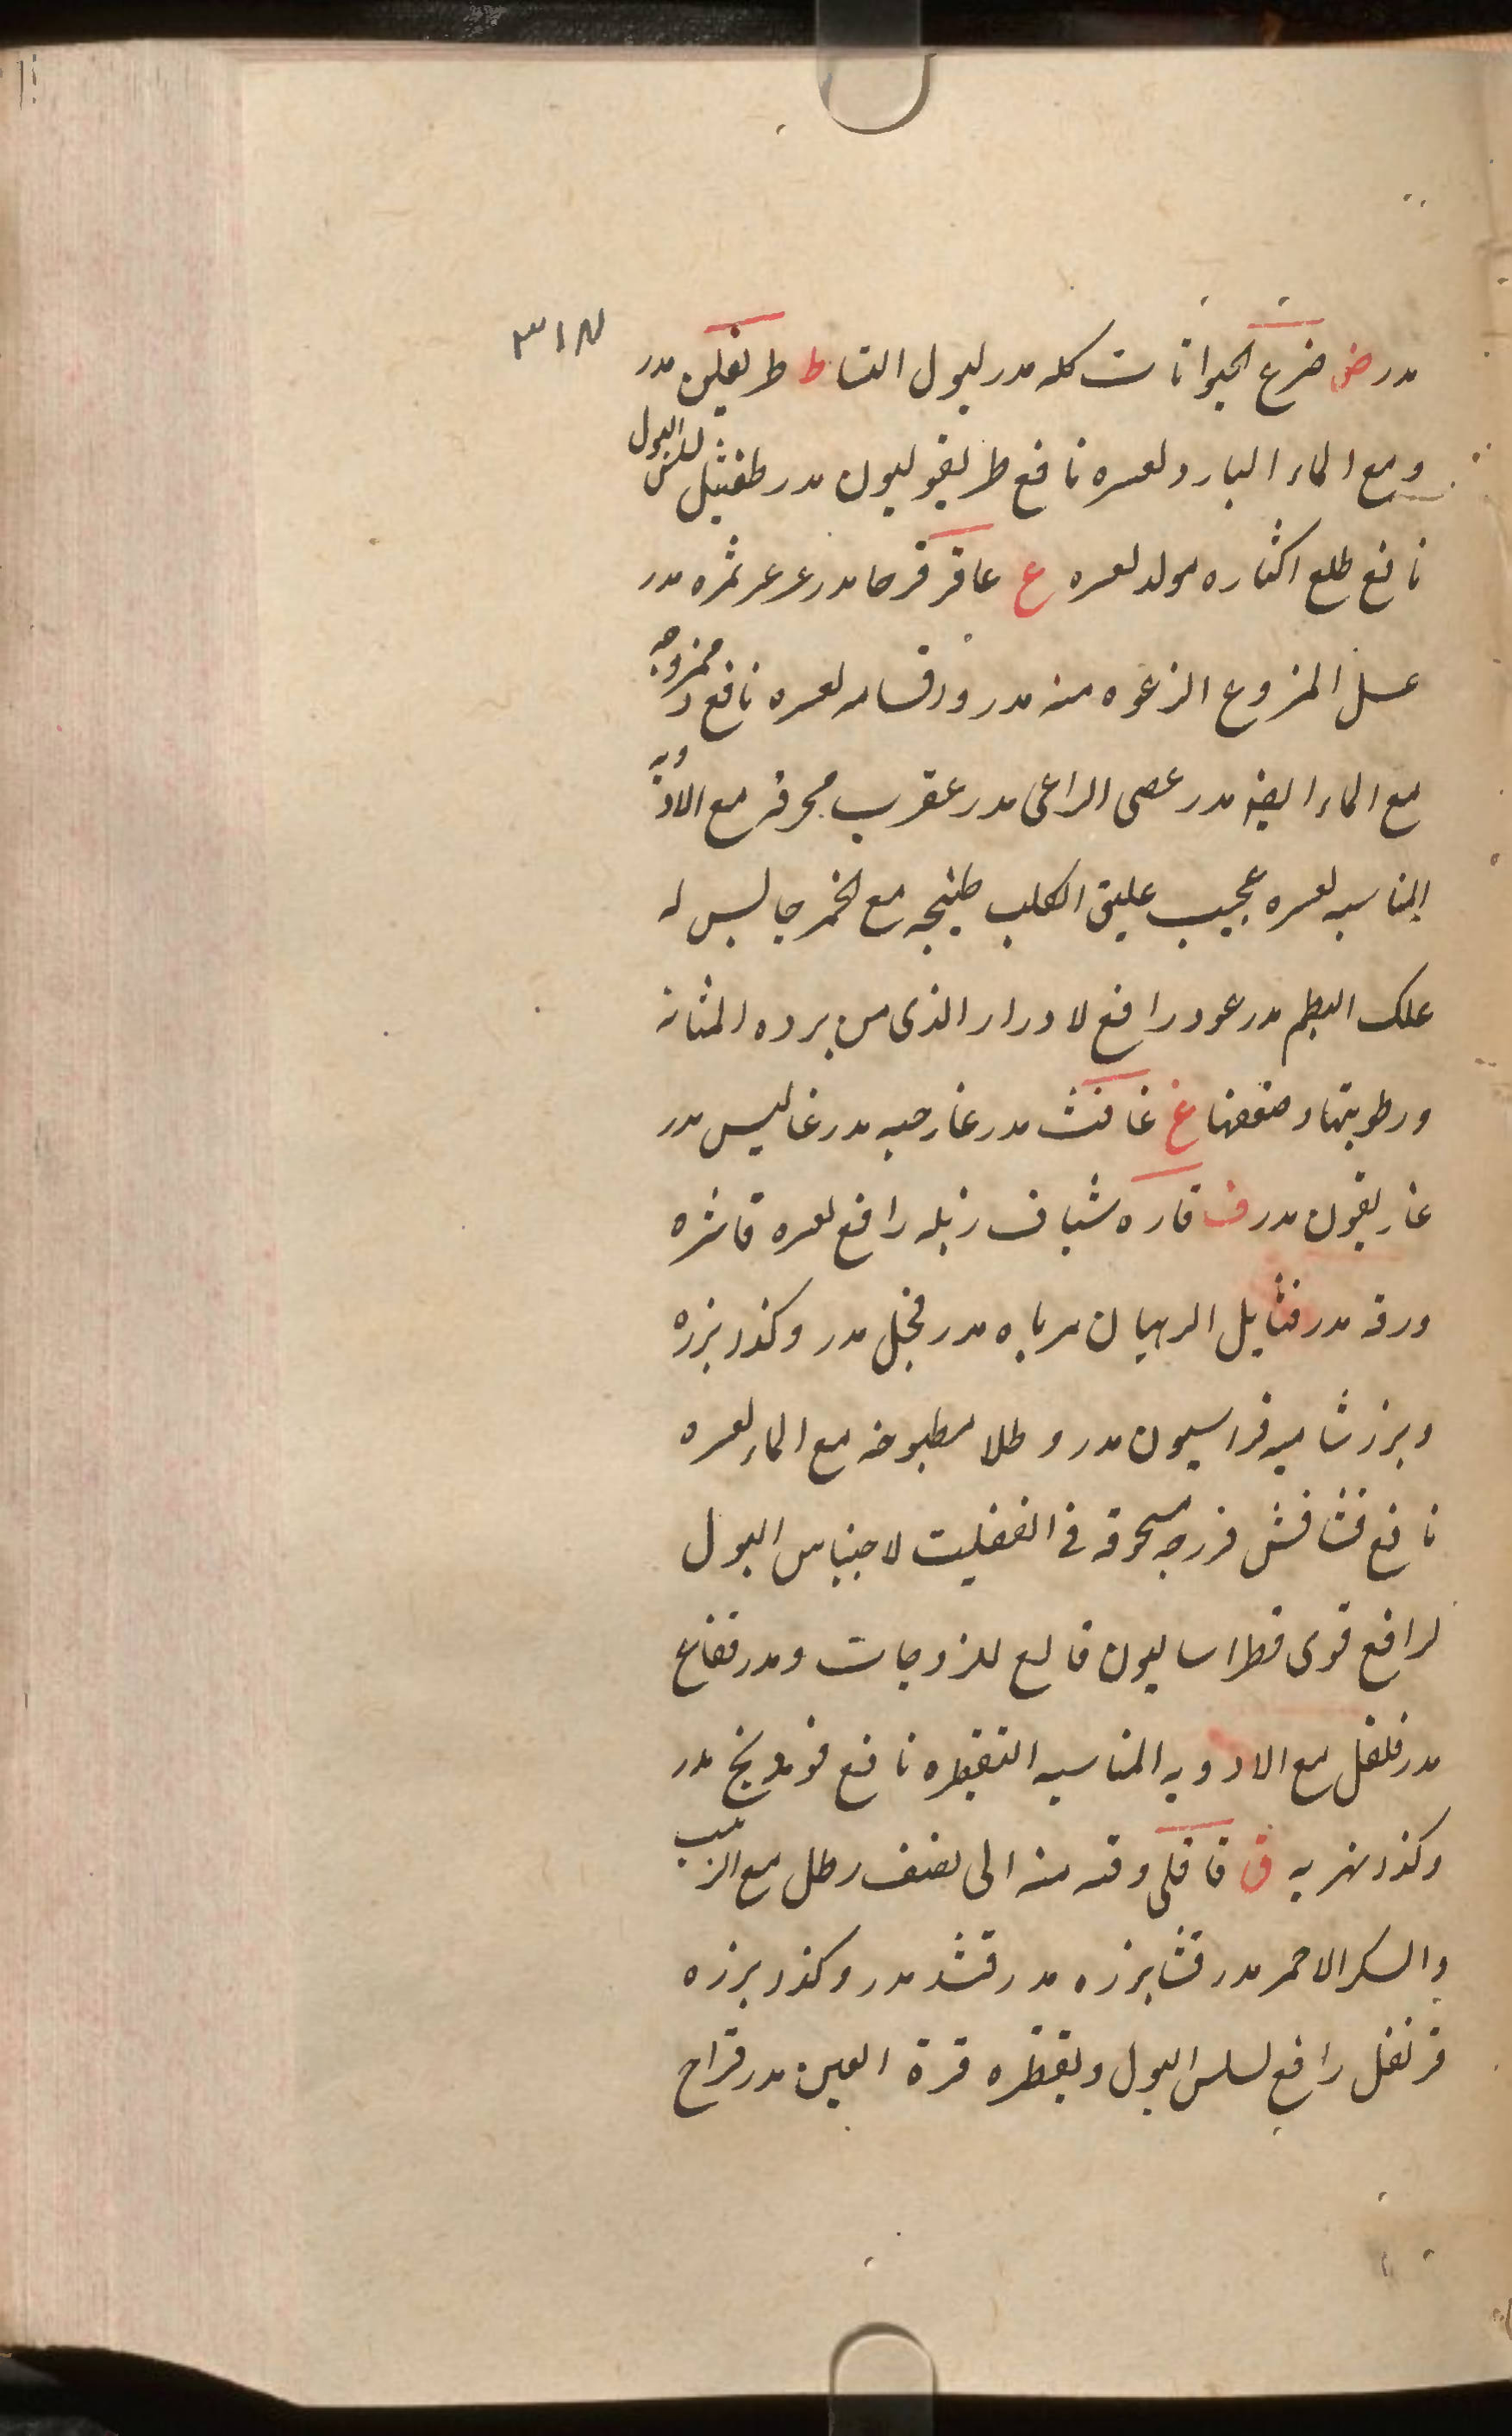 ٣١٨
مدر ض ضرع الحيوانات كله مدر لبول النسا ط طريفلن مدر
ومع الماء البارد لعسره نافع طريفوليون مدر طفثيل لسلس البول
نافع طلع اكثاره مولد لعسره ع عاقرقرحا مدر عرعر ثمره مدر
عسل المنزوع الرغوه منه مدر ورقسا مه لعسره نافع وممزوجه
مع الماء ايضه مدر عصى الراعى مدر عقرب محرقه مع الادويه
المناسبه لعسره عجيب عليق الكلب طبيخه مع الخمر حابس له
علك البطم مدر عود رافع لادرار الذى من برده المثانه
ورطوبتها وضعفها غ غافث مدر غار حبه مدر غاليس مدر
غاريقون مدر ف فاره شياف زبله رافع لعسره فاشره
ورقه مدر فتايل الرهبان مرباه مدر فجل مدر وكذا بزره
وبزر شاميه فراسيون مدر وطلا مطبوخه مع الماء لعسره
نافع فشافش فرزجه مسحوقه فى الفتيلت لاحتباس البول
لرافع قوى فطراساليون قالع للزوجات ومدر فقاع
مدر فلفل مع الادويه المناسبه التقطيره نافع فوذنج مدر
وكذا نهريه ق قاقلى وقيه منه الى نصف رطل مع الزبيب
والسكر الاحمر مدر قثا بزره مدر قثد مدر وكذا بزره
قرنفل رافع لسلس البول وتقطره قرة العين مدر قراح